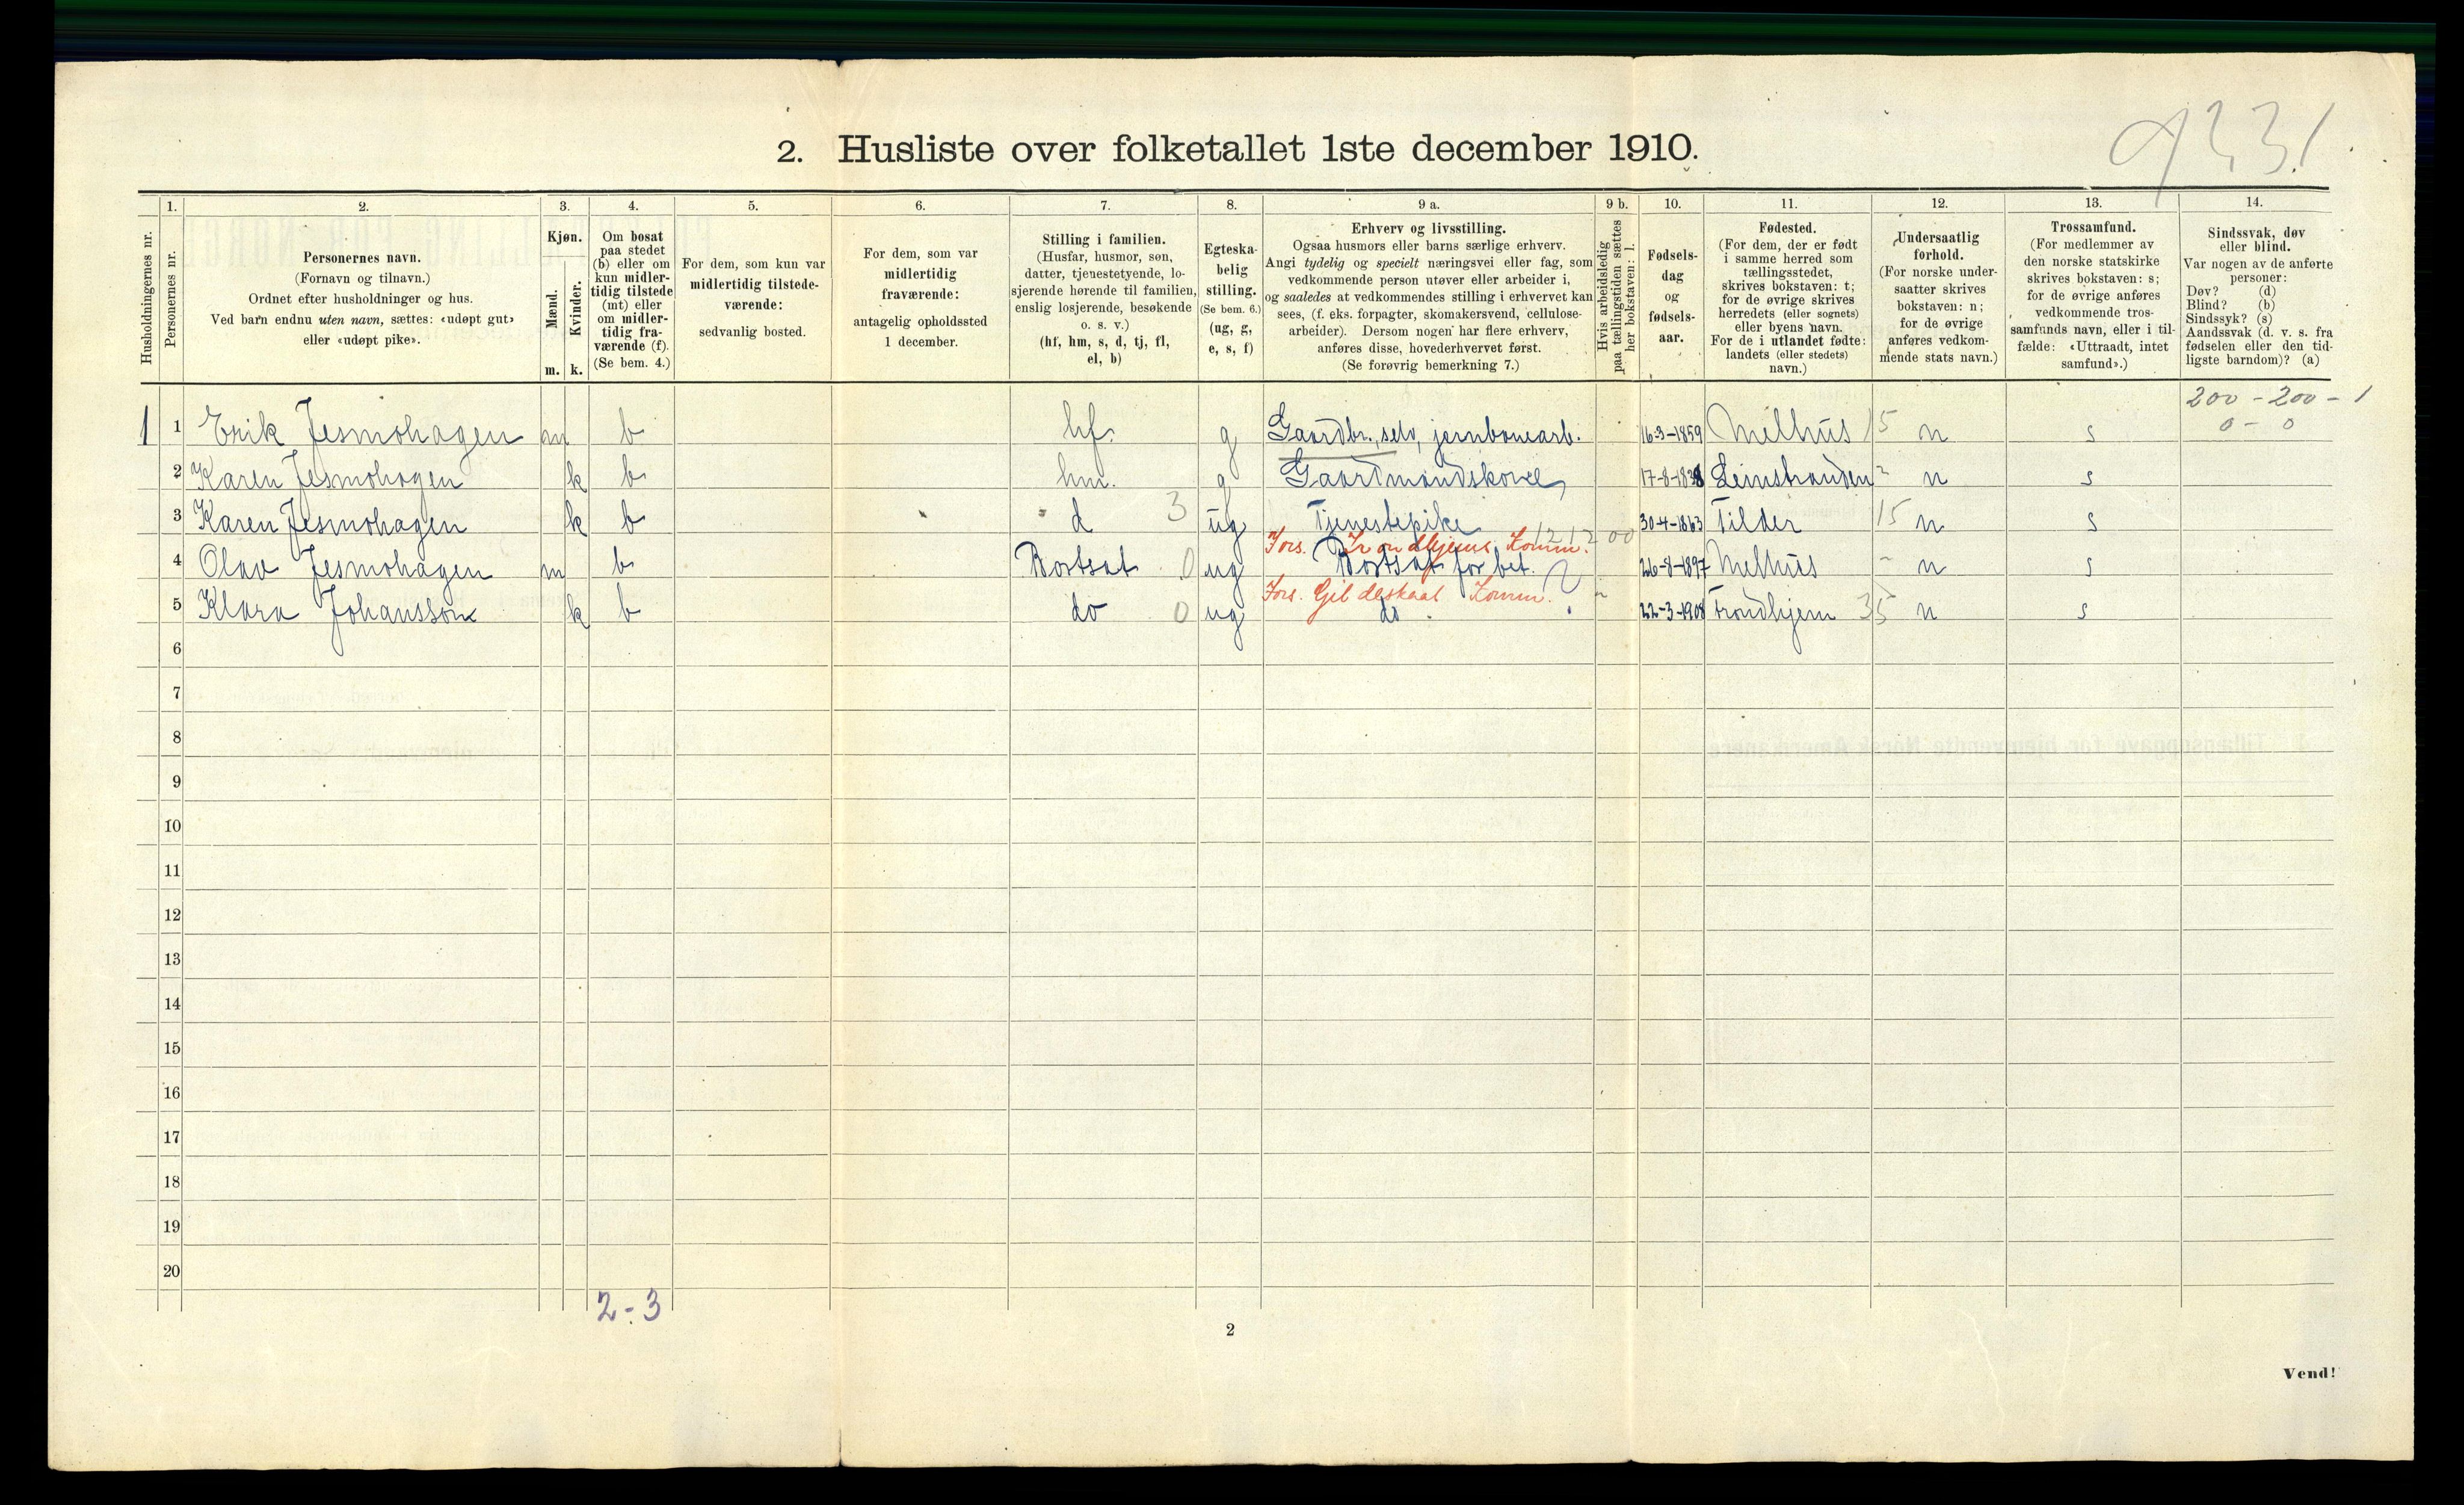 9331
2. Husliste over folketallet 1ste december 1910.
Husholdningernes nr.
1.
Personernes nr.
2.
Personernes navn.
(Fornavn og tilnavn.)
Ordnet efter husholdninger og hus.
Ved barn endnu uten navn, sættes: «udøpt gut»
eller «udøpt pike».
3.
Kjøn.
Mænd.
Kvinder.
m. k.
4.
Om bosat
paa stedet
(b) eller om
kun midler-
tidig tilstede
(mt) eller
om midler-
tidig fra-
værende (f).
(Se bem. 4.)
5.
For dem, som kun var
midlertidig tilstede-
værende:
sedvanlig bosted.
6.
For dem, som var
midlertidig
fraværende:
antagelig opholdssted
1 december.
7.
Stilling i familien.
(Husfar, husmor, søn,
datter, tjenestetyende, lo-
sjerende hørende til familien,
enslig losjerende, besøkende
o. s. v.)
(hf, hm, s, d, tj, fl,
el, b)
8.
Egteska-
belig
stilling.
(Se bem. 6.)
(ug, g,
e, s, f)
9 a.
Erhverv og livsstilling.
Ogsaa husmors eller barns særlige erhverv.
Angi tydelig og specielt næringsvei eller fag, som
vedkommende person utøver eller arbeider i,
og saaledes at vedkommendes stilling i erhvervet kan
sees, (f. eks. forpagter, skomakersvend, cellulose-
arbeider). Dersom nogen har flere erhverv,
anføres disse, hovederhvervet først.
(Se forøvrig bemerkning 7.)
9 b.
Hvis arbeidsledig
paa tællingstiden sættes
her bokstaven: l.
10.
Fødsels-
dag
og
fødsels-
aar.
11.
Fødested.
(For dem, der er født
i samme herred som
tællingsstedet,
skrives bokstaven: t;
for de øvrige skrives
herredets (eller sognets)
eller byens navn.
For de i utlandet fødte:
landets (eller stedets)
navn.)
12.
Undersaatlig
forhold.
(For norske under-
saatter skrives
bokstaven: n;
for de øvrige
anføres vedkom-
mende stats navn.)
13.
Trossamfund.
(For medlemmer av
den norske statskirke
skrives bokstaven: s;
for de øvrige anføres
vedkommende tros-
samfunds navn, eller i til-
fælde: «Uttraadt, intet
samfund».)
14.
Sindssvak, døv
eller blind.
Var nogen av de anførte
personer:
Døv? (d)
Blind? (b)
Sindssyk? (s)
Aandssvak (d. v. s. fra
fødselen eller den tid-
ligste barndom)? (a)
200 - 200 - 1
0 - 0
1 1 Erik Jesmohagen m b hf. g Gaardbr., selv, jernbanearb. 16-3-1859 Melhus 15 n s
2 Karen Jesmohagen k b hm. g Gaardmandskone Leinstranden n s
3 Karen Jesmohagen k b d 3 ug Tjenestepike 30-4-1863 Tilder 15 n s
Fors. Trondhjems Komm. 121200
4 Olav Jesmohagen m b Bortsat 0 ug Bortsat for bet. 26-8-1897 Melhus n s
Fors. Gildeskaal Komm. ?
5 Klara Johansson k b do 0 ug do 22-3-1908 Trondhjem 35 n s
6
7
8
9
10
11
12
13
14
15
16
17
18
19
20
2 - 3
2
Vend!